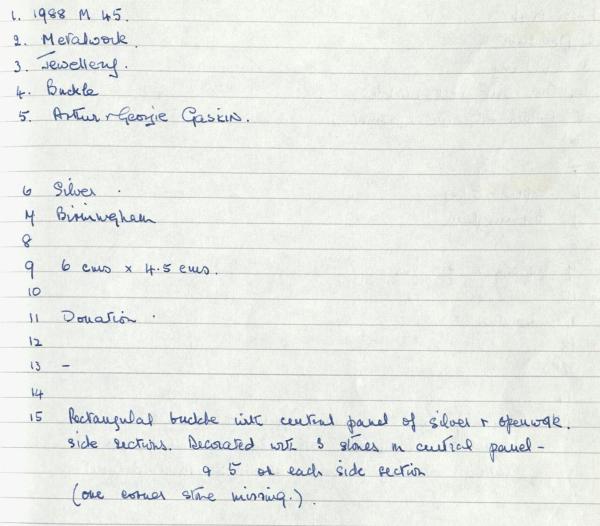 1. 1988 M 45.
2. Metalwork.
3. Jewellery.
4. Buckle
5. Arthur + Georgie Gaskin.
6 Silver.
7 Birmingham
8
9 6 cms x 4.5 cms.
10
11 Donation.
12
13 -
14
15 Rectangular buckle with central panel of silver + openwork.
side sections. Decorated with 3 stones in central panel -
& 5 on each side section
(one corner stone missing.).